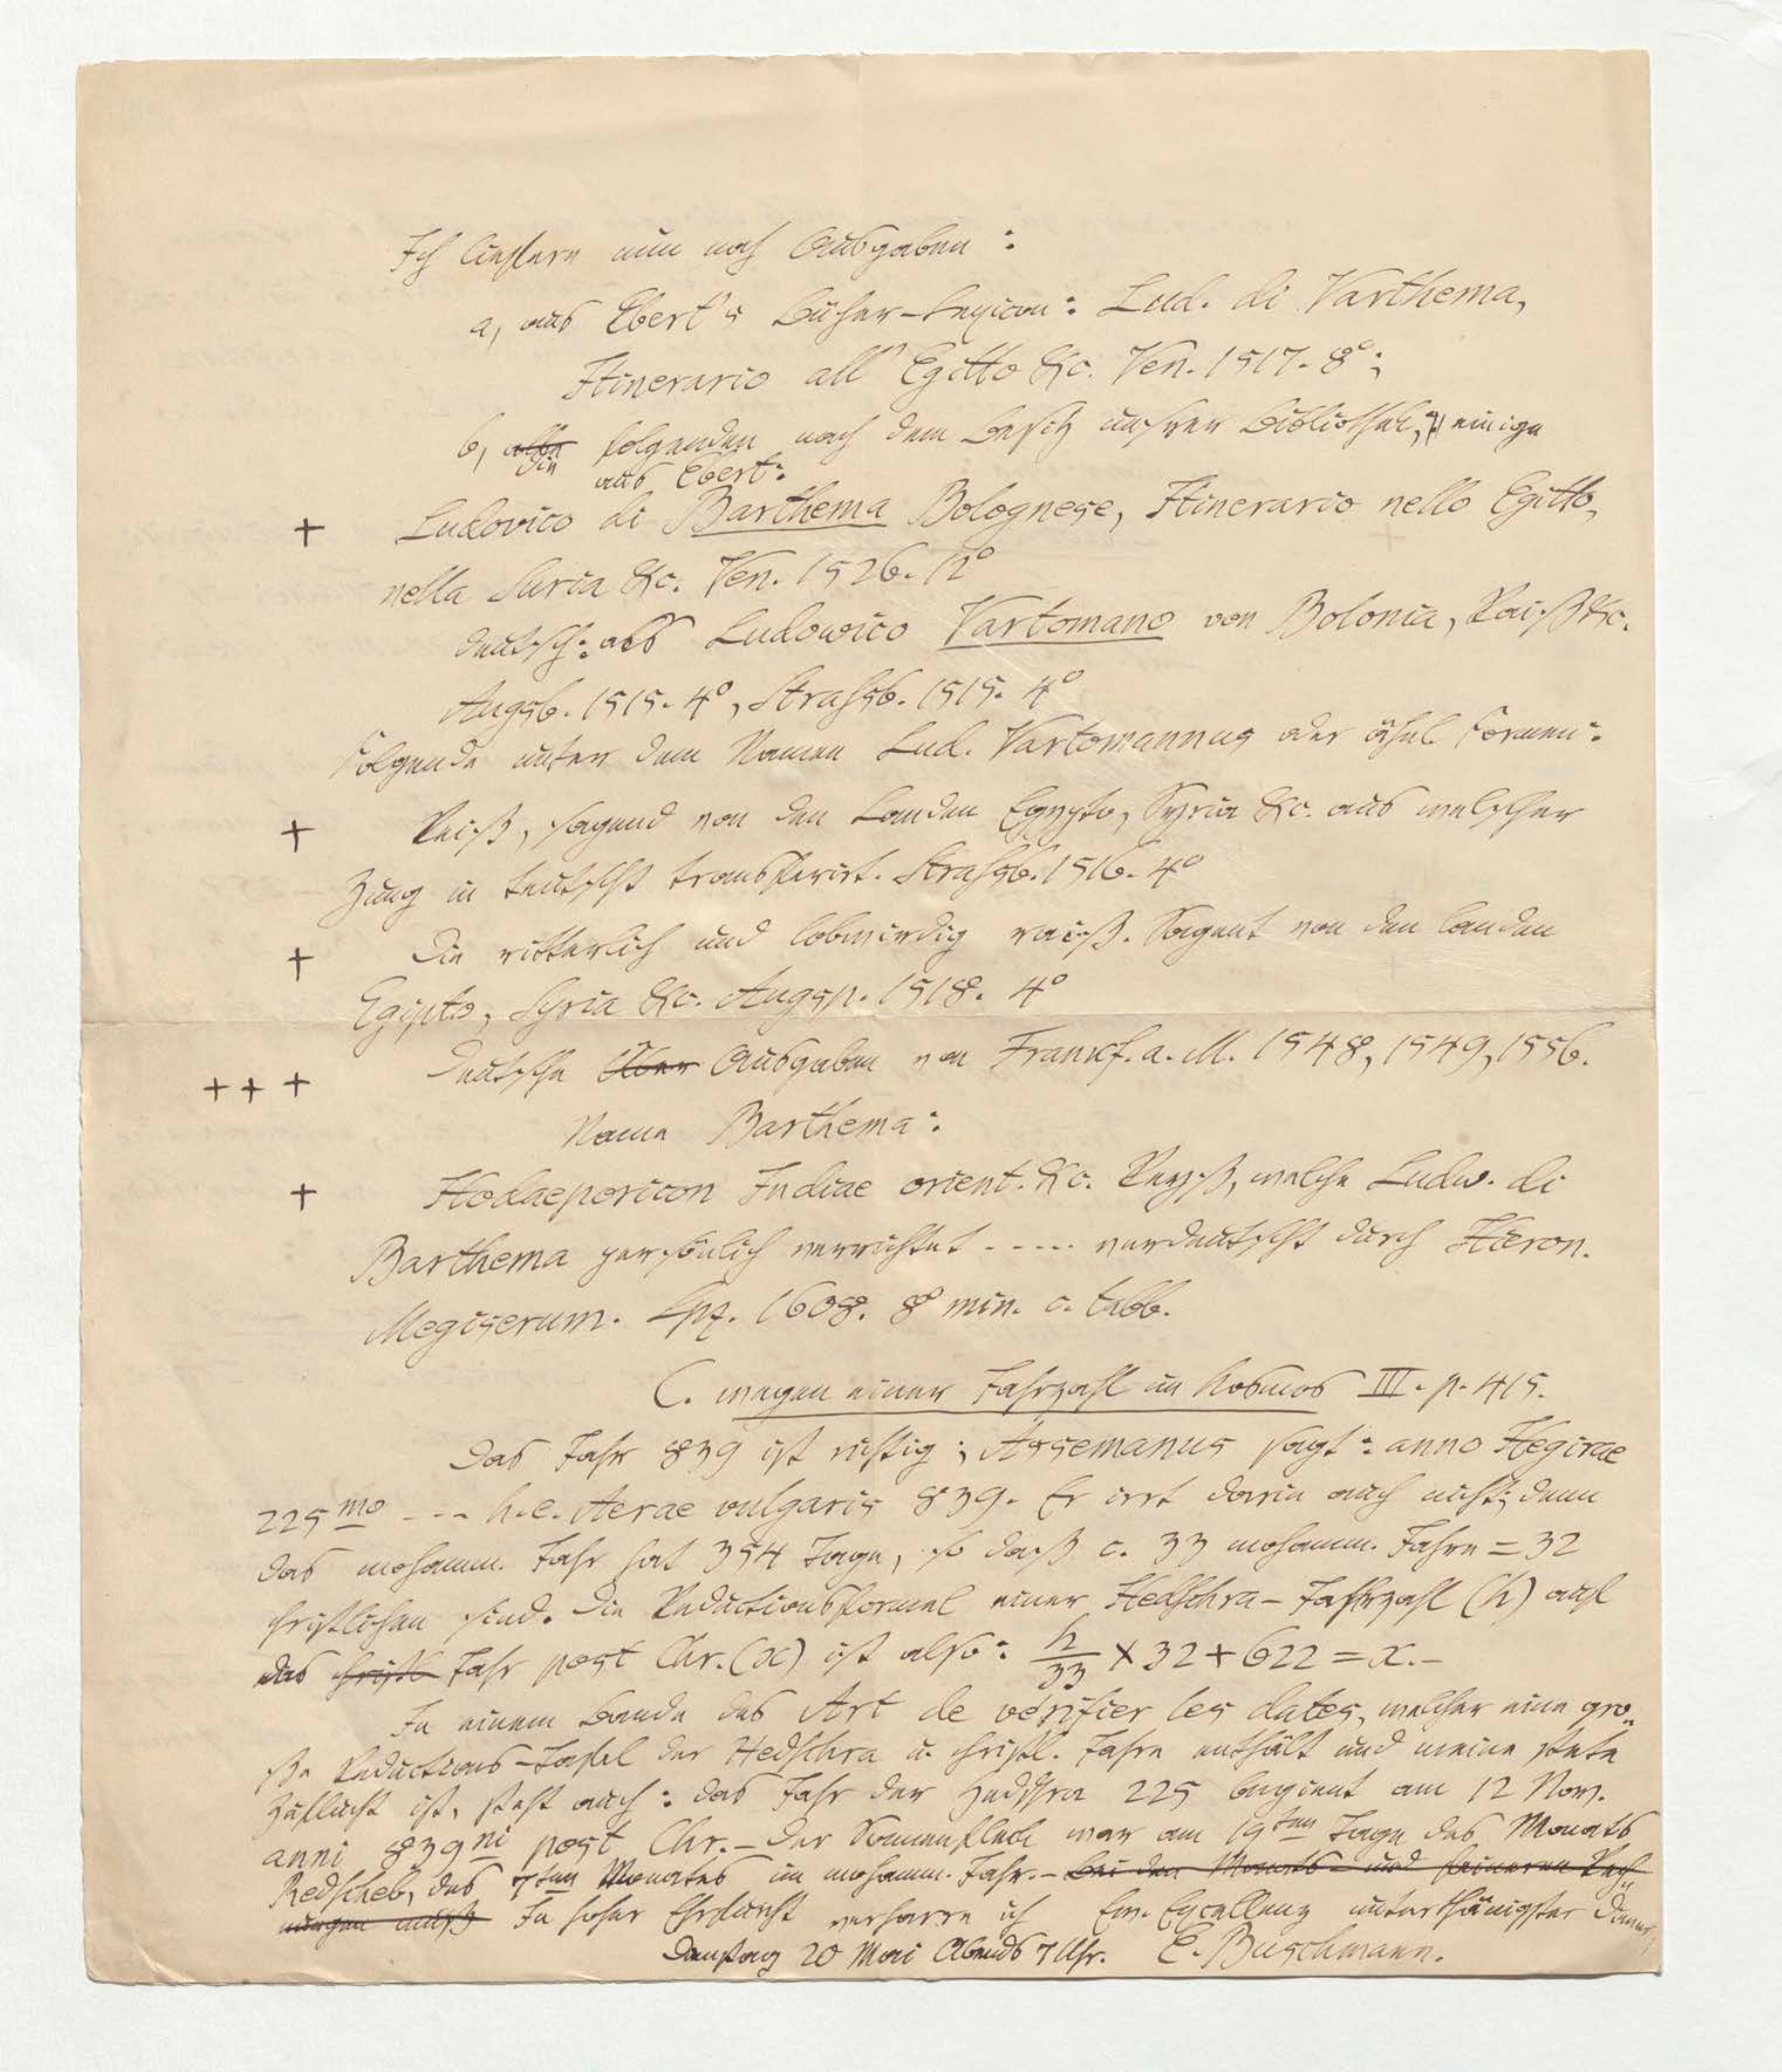 Ich liefere nun noch Ausgaben:
a, aus Ebert's Bücher-Lexicon: Lud. di Varthema,
Itinerario all' Egitto &c. Ven. 1517. 8°;
b, alle folgenden nach dem Besitz unsrer Bibliothek, einige
die aus Ebert:
+ Ludovico di Barthema Bolognese, Itinerario nello Egitto,
nella Suria &c. Ven. 1526. 12°
deutsch: als Ludowico Vartomano von Bolonia, Raiß &c.
Augsb. 1515. 4°, Strassb. 1515. 4°
Folgende unter dem Namen Lud. Vartomannus oder ähnl. Formen:
+ Reiß, sagend von den Landen Egypto, Syria &c. aus welscher
Zung in teutscht transferirt. Strassb. 1516. 4°
+ Die ritterlich und lobwirdig raiß. Sagent von den landen
Egipto, Syria &c. Augsp. 1518. 4°
+ + + Deutsche Über Ausgaben von Frankf. a. M. 1548, 1549, 1556.
Name Barthema:
+ Hodaeporicon Indiae orient. &c. Reyß, welche Ludw. di
Barthema persönlich verrichtet ..... verdeutscht durch Hieron.
Megiserum. Lpz. 1608. 8° min. c. tabb.
C. wegen einer Jahrzahl im Kosmos III. p. 415.
Das Jahr 839 ist richtig; Assemanus sagt: anno Hegirae
225mo --- h. e. Aerae vulgaris 839. Er irrt darin auch nicht; denn
das mohamm. Jahr hat 354 Tage, so daß c. 33 mohamm. Jahre = 32
christlichen sind. Die Reductionsformel einer Hedschra-Jahrzahl (h) auf
das christl Jahr post Chr. (x) ist also: h/33 × 32 + 622 = x. –
In einem Bande des Art de vérifier les dates, welcher eine gro-
ße Reductions-Tafel der Hedschra u. christl. Jahre enthält und meine stete
Zuflucht ist, steht auch: das Jahr der Hedschra 225 beginnt am 12 Nov.
anni 839ni post Chr. – Der Sonnenfleck war am 19ten Tage des Monats
Redscheb, des 7ten Monates im mohamm. Jahr. – Bei den Monats- und feineren Rech-
nungen muß In hoher Ehrfurcht verharre ich Ew. Excellenz unterthänigster Diener
Dienstag 20 Mai Abends 7 Uhr. E. Buschmann.